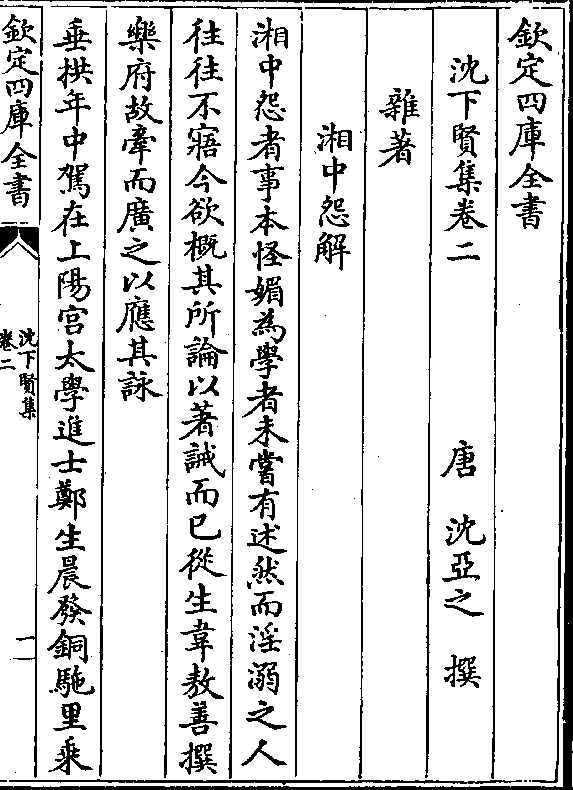 欽定四庫全書
沈下賢集卷二
唐 沈亞之 撰
雜著
湘中怨解
湘中怨者事本怪媚為學者未嘗有述然而淫溺之人
往往不寤今欲概其所論以著誡而已從生韋敖善撰
樂府故牽而廣之以應其詠
垂拱年中駕在上陽宫太學進士鄭生晨發銅駞里乘
欽定四庫全書
沈下賢集
卷二
一